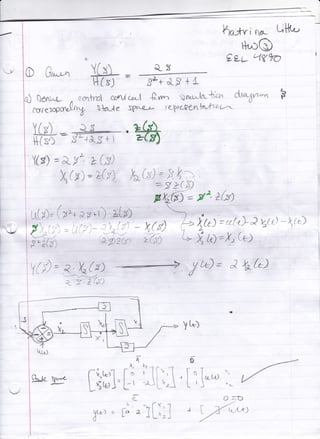 Katrina Little
HW ③
EEL 4890
① Given Y(s)/H(s) = 2s / s²+2s+1
a) Derive control canonical form simulation diagram &
corresponding state space representation
Y(s)/H(s) = 2s / s²+2s+1 · Z(s)/Z(s)
Y(s) = 2s · Z(s)
X₁(s) = Z(s) X₂(s) = sX₁
= sZ(s)
sX₂(s) = s² · Z(s)
U(s) = (s²+2s+1) Z(s)
sX₂(s) = U(s) - 2X₂(s) - X₁(s) → ẋ₂(t) = u(t) - 2x₂(t) - x₁(t)
s²Z(s) 2sZ(s) Z(s) → ẋ₁(t) = x₂(t)
Y(s) = 2·X₂(s) → y(t) = 2x₂(t)
2·s·Z(s)
y(t)
u(t)
A B
State space [ẋ₁(t) ẋ₂(t)] = [0 1 -1 -2] [x₁ x₂] + [0 1] u(t)
C D=0
y(t) = [0 2] [x₁ x₂] + [ ] u(t)